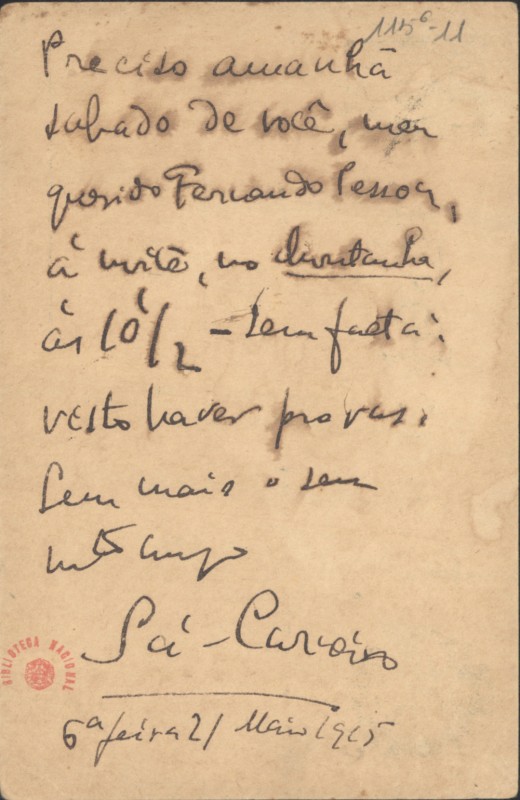 115⁶-11
Preciso amanhã
sabado de você, meu
querido Fernando Pessoa,
á noite, no Montanha,
ás 10 1/2 - sem falta:
visto haver provas.
Sem mais o seu
m.to amigo
Sá-Carneiro
6ª feira 21 Maio 1915
BIBLIOTECA NACIONAL